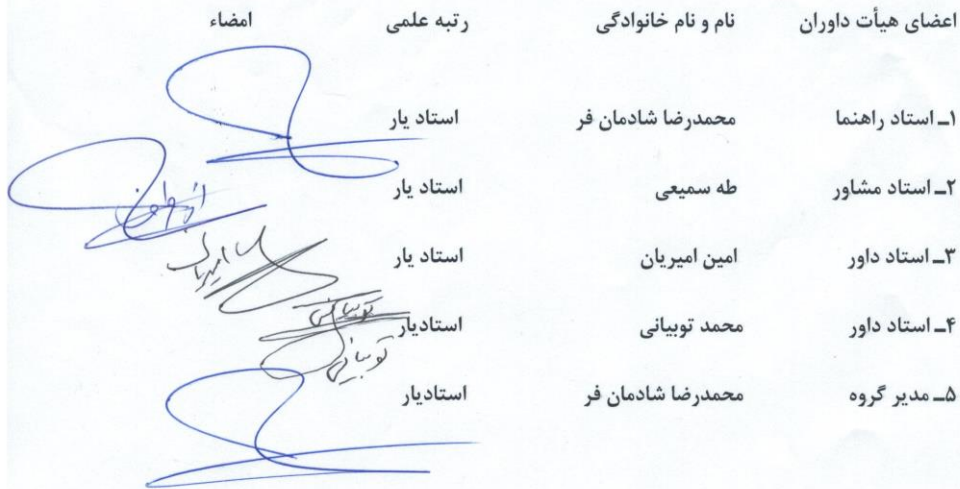 اعضای هیأت داوران نام و نام خانوادگی رتبه علمی امضاء
۱ـ استاد راهنما محمدرضا شادمان فر استاد یار
۲ـ استاد مشاور طه سمیعی استاد یار
۳ـ استاد داور امین امیریان استاد یار
امیریان
۴ـ استاد داور محمد توبیانی استادیار
توبیانی
توبیانی
۵ـ مدیر گروه محمدرضا شادمان فر استادیار